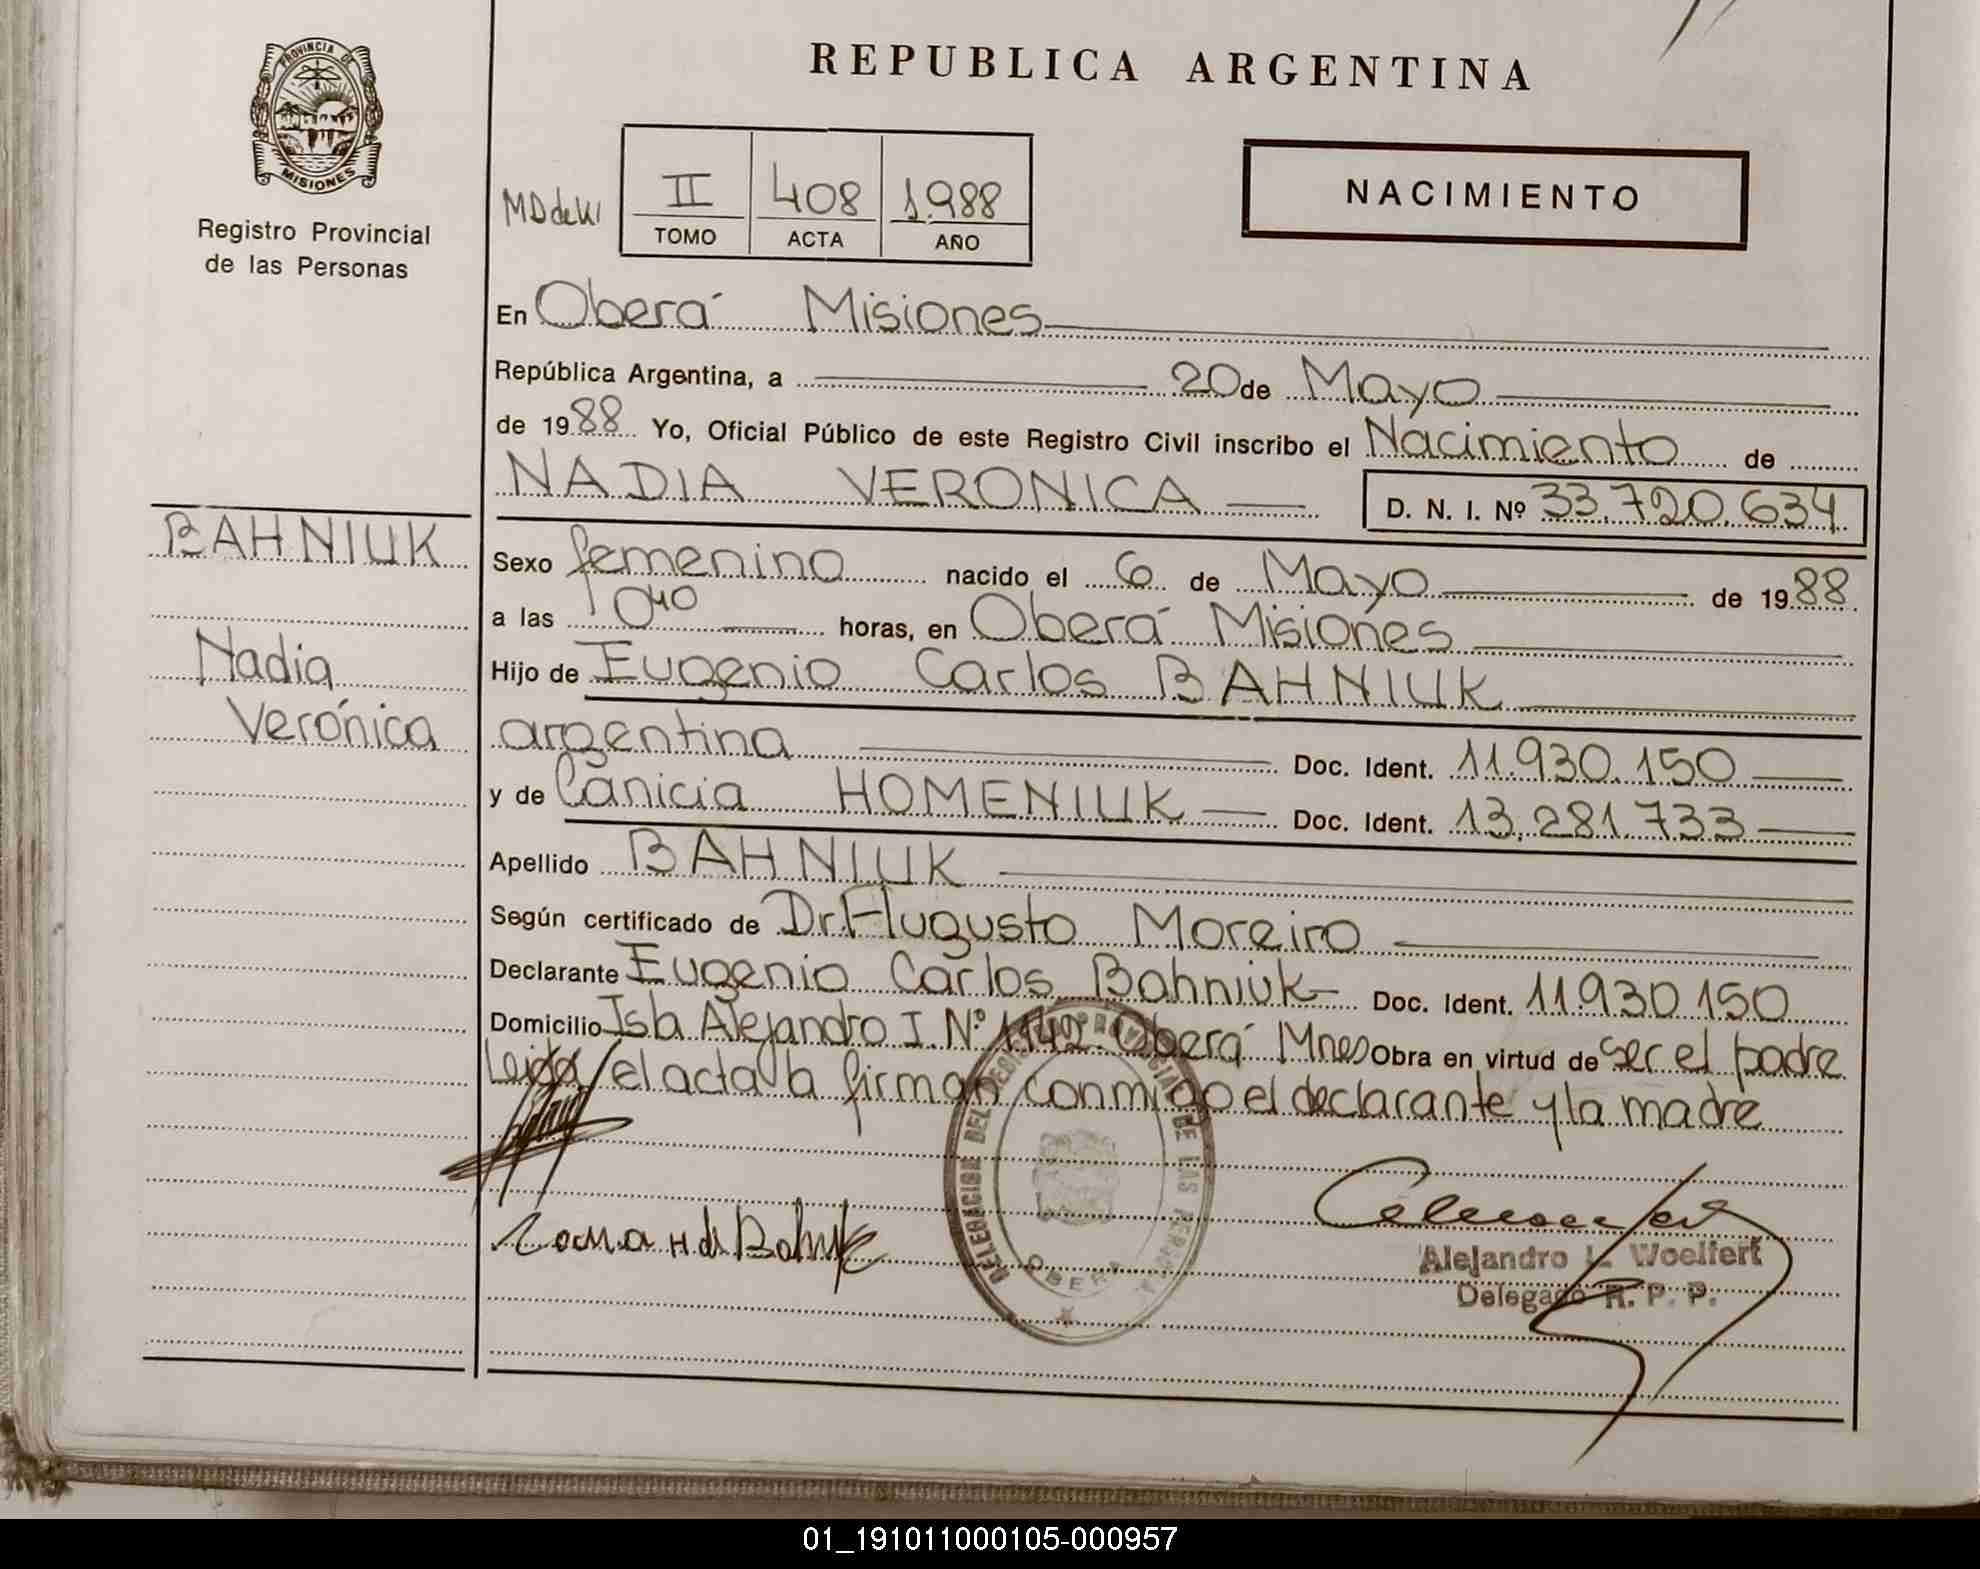 REPUBLICA ARGENTINA
PROVINCIA DE
MISIONES
Registro Provincial
de las Personas
II 408 1.988
TOMO ACTA AÑO
NACIMIENTO
En Oberá Misiones
República Argentina, a 20 de Mayo
de 1988 Yo, Oficial Público de este Registro Civil inscribo el Nacimiento de
NADIA VERONICA D. N. I. Nº 33.720.634
BAHNIUK
Nadia
Verónica
Sexo femenino nacido el 6 de Mayo de 1988
a las 0 40 horas, en Oberá Misiones
Hijo de Eugenio Carlos BAHNIUK
argentina Doc. Ident. 11.930.150
y de Canicia HOMENIUK Doc. Ident. 13.281.733
Apellido BAHNIUK
Según certificado de Dr. Augusto Moreiro
Declarante Eugenio Carlos Bahniuk Doc. Ident. 11.930 150
Domicilio Isla Alejandro I. Nº 1142. Oberá Mnes Obra en virtud de ser el padre
Leida el acta la firman conmigo el declarante y la madre
DELEGACION DEL REGISTRO PROVINCIAL DE LAS PERSONAS
OBERA
Alejandro L. Woelfert
Delegado R. P. P.
01_191011000105-000957